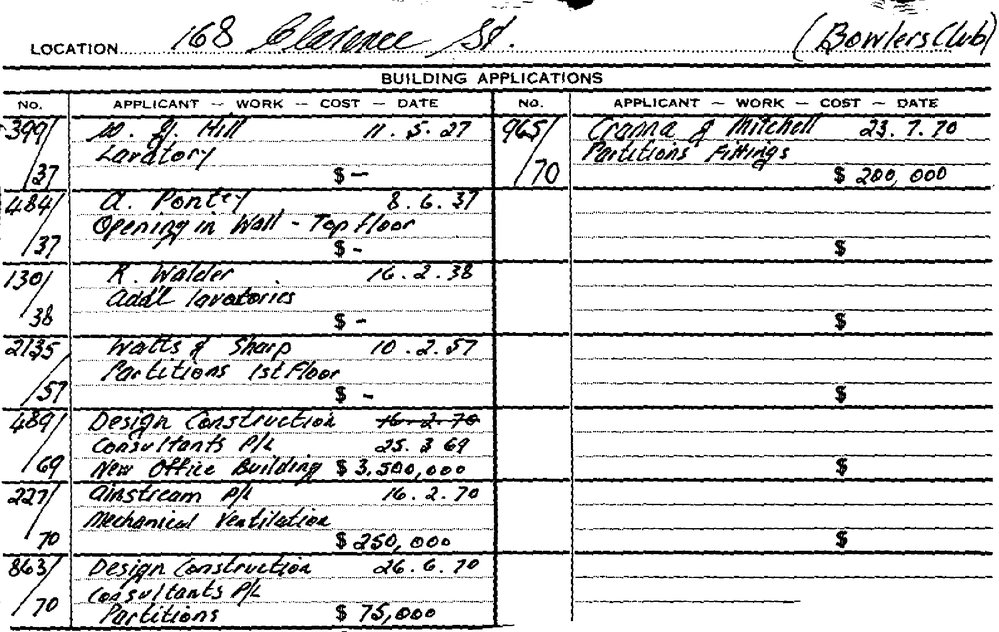 LOCATION 168 Clarence St. (Bowlers Club)
BUILDING APPLICATIONS
No. APPLICANT — WORK — COST — DATE
399/37 W. J. Hill 11.5.27
Lavatory
$ -
484/37 A. Pontey 8.6.37
Opening in Wall - Top floor
$ -
130/38 R. Walder 16.2.38
Add'l lavatories
$ -
2135/57 Watts & Sharp 10.2.57
Partitions 1st Floor
$ -
489/69 Design Construction 16.2.70
Consultants P/L 25.3 69
New Office Building $ 3,500,000
227/70 Airstream P/L 16.2.70
Mechanical Ventilation
$ 250,000
863/70 Design Construction 26.6.70
Consultants P/L
Partitions $ 75,000
No. APPLICANT — WORK — COST — DATE
965/70 Cranna & Mitchell 23.7.70
Partitions Fittings
$ 200,000
$
$
$
$
$